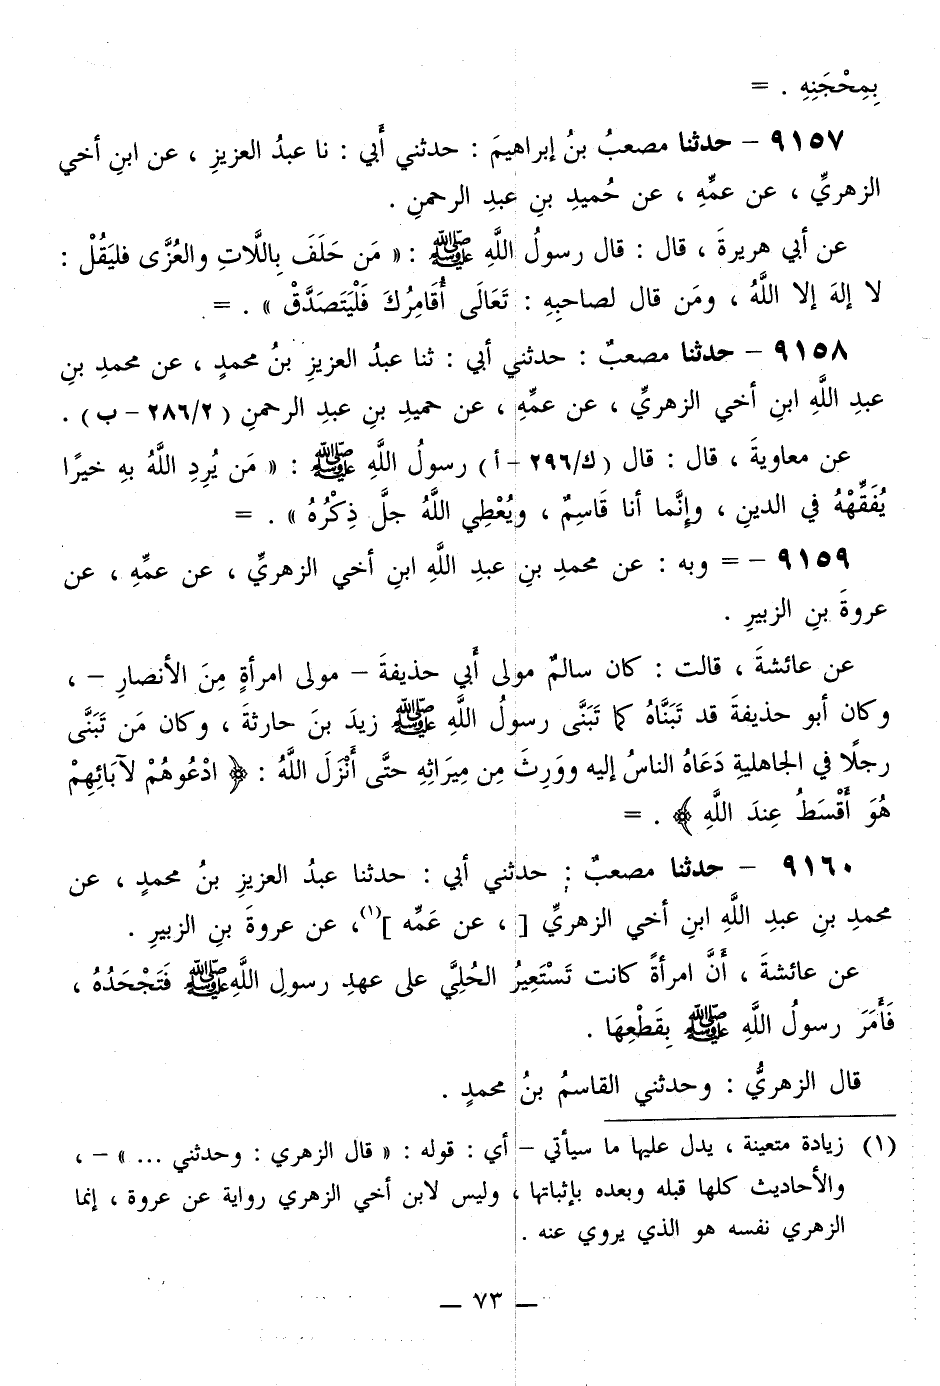 بِمِحْجَنِهِ . =
٩١٥٧ – حدثنا مصعبُ بنُ إبراهيمَ : حدثني أَبي : نا عبدُ العزيزِ ، عن ابنِ أخي
الزهريِّ ، عن عمِّهِ ، عن حُميدِ بنِ عبدِ الرحمنِ .
عن أبي هريرةَ ، قال : قال رسولُ اللَّهِ ﷺ : « مَن حَلَفَ بِاللَّاتِ والعُزَّى فليَقُلْ :
لا إلهَ إلا اللَّهُ ، ومَن قال لصاحبِهِ : تَعَالَى أُقَامِرُكَ فَلْيَتَصَدَّقْ » . =
٩١٥٨ – حدثنا مصعبٌ : حدثني أبي : ثنا عبدُ العزيزِ بنُ محمدٍ ، عن محمدِ بنِ
عبدِ اللَّهِ ابنِ أخي الزهريِّ ، عن عمِّهِ ، عن حميدِ بنِ عبدِ الرحمنِ ( ٢٨٦/٢ – ب ) .
عن معاويةَ ، قال : قال ( ك/٢٩٦ – أ ) رسولُ اللَّهِ ﷺ : « مَن يُرِدِ اللَّهُ بِهِ خيرًا
يُفَقِّهْهُ في الدينِ ، وإِنَّما أنا قَاسِمٌ ، ويُعْطِي اللَّهُ جلَّ ذِكْرُهُ » . =
٩١٥٩ – = وبه : عن محمدِ بنِ عبدِ اللَّهِ ابنِ أخي الزهريِّ ، عن عمِّهِ ، عن
عروةَ بنِ الزبيرِ .
عن عائشةَ ، قالت : كان سالمٌ مولى أَبي حذيفةَ – مولى امرأةٍ مِنَ الأنصارِ – ،
وكان أبو حذيفةَ قد تَبَنَّاهُ كما تَبَنَّى رسولُ اللَّهِ ﷺ زيدَ بنَ حارثةَ ، وكان مَن تَبَنَّى
رجلًا في الجاهليةِ دَعَاهُ الناسُ إليه ووَرِثَ مِن مِيرَاثِهِ حتَّى أَنْزَلَ اللَّهُ : ﴿ ادْعُوهُمْ لآبَائِهِمْ
هُوَ أَقْسَطُ عِندَ اللَّهِ ﴾ . =
٩١٦٠ – حدثنا مصعبٌ : حدثني أبي : حدثنا عبدُ العزيزِ بنُ محمدٍ ، عن
محمدِ بنِ عبدِ اللَّهِ ابنِ أخي الزهريِّ [ ، عن عَمِّه ](١)، عن عروةَ بنِ الزبيرِ .
عن عائشةَ ، أَنَّ امرأةً كانت تَسْتَعِيرُ الحُلِيَّ على عهدِ رسولِ اللَّهِ ﷺ فَتَجْحَدُهُ ،
فَأَمَرَ رسولُ اللَّهِ ﷺ بِقَطْعِهَا .
قال الزهريُّ : وحدثني القاسمُ بنُ محمدٍ .
(١) زيادة متعينة ، يدل عليها ما سيأتي – أي : قوله : « قال الزهري : وحدثني ... » – ،
والأحاديث كلها قبله وبعده بإثباتها ، وليس لابن أخي الزهري رواية عن عروة ، إنما
الزهري نفسه هو الذي يروي عنه .
– ٧٣ –